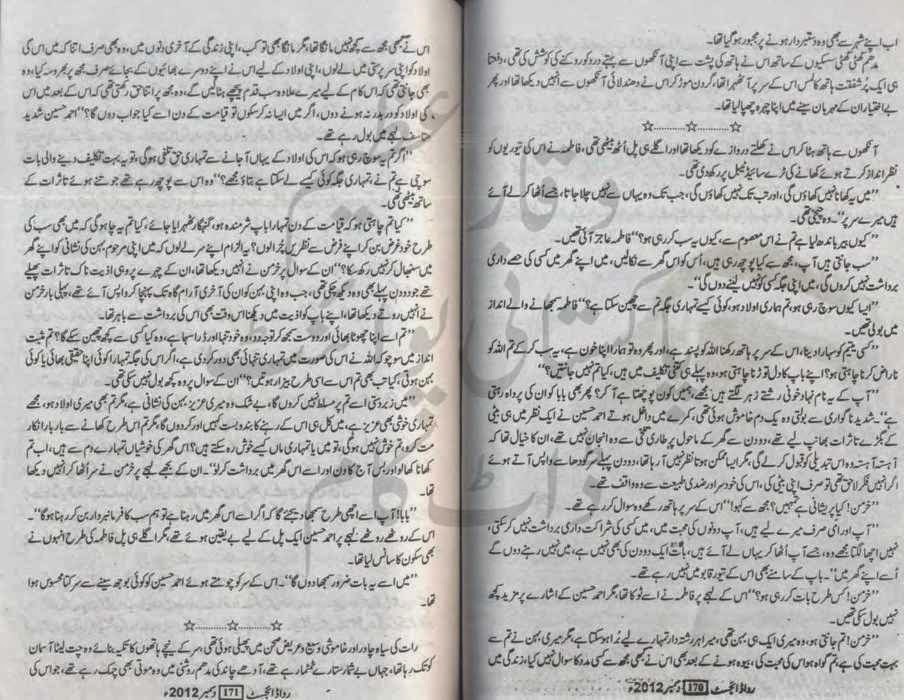 اب اپنے شہر سے بھی وہ دستبردار ہونے پر مجبور ہو گیا تھا۔
مدھم گھٹی گھٹی سسکیوں کے ساتھ اس نے ہاتھ کی پشت سے اپنی آنکھوں سے بہتے درد کو روکنے کی کوشش کی تھی، دفعتا
ہی ایک پُر شفقت ہاتھ کا لمس اس کے سر پر آ ٹھہرا تھا، گردن موڑ کر اس نے دھندلائی آنکھوں سے انہیں دیکھا تھا اور پھر
بے اختیار ان کے مہربان سینے میں اپنا چہرہ چھپا لیا تھا۔
☆............☆............☆
آنکھوں سے ہاتھ ہٹا کر اس نے کھلتے دروازے کو دیکھا تھا اور اگلے ہی پل اُٹھ بیٹھی تھی، فاطمہ نے اس کی تیوریوں کو
نظر انداز کرتے ہوئے کھانے کی ٹرے سائیڈ ٹیبل پر رکھ دی تھی۔
”میں یہ کھانا نہیں کھاؤں گی، اور تب تک نہیں کھاؤں گی، جب تک وہ یہاں سے نہیں چلا جاتا، جسے اُٹھا کر لے آئے
ہیں میرے سر پر“۔ وہ چیخی تھی۔
”کیوں بیر باندھ لیا ہے تم نے اس معصوم سے، کیوں یہ سب کر رہی ہو؟“ فاطمہ عاجز آئی تھیں۔
”سب جانتی ہیں آپ، مجھ سے کیا پوچھ رہی ہیں، اُس کو اس گھر سے نکالیں، میں اپنے گھر میں کسی کی حصے داری
برداشت نہیں کروں گی، میں اپنی جگہ کسی کو نہیں لینے دوں گی“۔
”ایسا کیوں سوچ رہی ہو، تم ہماری اولاد ہو، کوئی کیسے تمہاری جگہ تم سے چھین سکتا ہے؟“ فاطمہ سمجھانے والے انداز
میں بولی تھیں۔
”کسی یتیم کو سہارا دینا، اس کے سر پر ہاتھ رکھنا اللہ کو پسند ہے، اور پھر وہ تو ہمارا اپنا خون ہے، یہ سب کر کے تم اللہ کو
ناراض کرنا چاہتی ہو؟ اپنے باپ کا دل توڑنا چاہتی ہو، وہ پہلے ہی کتنی تکلیف میں ہیں، کیا تم نہیں جانتیں؟“
”آپ کے یہ نام نہاد خونی رشتے زہر لگتے ہیں مجھے، میں کون پوچھتا ہے آ کر؟ پھر بھی بابا کو ان کی پرواہ رہتی
ہے“۔ شدید ناگواری سے بولتی وہ یک دم خاموش ہوئی تھی، کمرے میں داخل ہوتے احمد حسین نے ایک نظر میں ہی بیٹی
کے بگڑے تاثرات بھانپ لیے تھے، دو دن سے گھر کے ماحول پر طاری تلخی سے وہ انجان نہیں تھے، ان کا خیال تھا کہ
آہستہ آہستہ وہ اس تبدیلی کو قبول کر لے گی، مگر ایسا ممکن ہوتا نظر نہیں آ رہا تھا، دو دن پہلے سرگودھا سے واپس آتے ہوئے
اگر انہیں فکر لاحق تھی تو صرف اپنی بیٹی کی، اس کی خودسر اور ضدی طبیعت سے وہ واقف تھے۔
”خرمن! کیا پریشانی ہے تمہیں؟ مجھ سے کہو!“ اس کے سر پر ہاتھ رکھے وہ سوال کر رہے تھے۔
”آپ اور امی صرف میرے لیے ہیں، آپ دونوں کی محبت میں، میں کسی کی شراکت داری برداشت نہیں کر سکتی،
نہیں اچھا لگتا مجھے وہ، جسے آپ اُٹھا کر یہاں لے آئے ہیں، بات ایک دو دن کی بھی نہیں ہے، میں نہیں رہنے دوں گی
اُسے اپنے گھر میں“۔ باپ کے سامنے بھی اس کے تیور قابو میں نہیں رہے تھے۔
”خرمن! کس طرح بات کر رہی ہو؟“ اس کے لہجے پر فاطمہ نے اسے ٹوکا تھا، مگر احمد حسین کے اشارے پر مزید کچھ
نہیں بول سکی تھیں۔
”خرمن! تم جانتی ہو، وہ میری ایک ہی بہن تھی، میرا ہر رشتہ دار تمہارے لیے بُرا ہو سکتا ہے، مگر میری بہن نے تم سے
بہت محبت کی ہے، تم گواہ ہو اس کی محبت کی، بیوہ ہونے کے بعد بھی اس نے کبھی مجھ سے کسی مدد کا سوال نہیں کیا، زندگی میں
رِدا ڈائجسٹ 170 دسمبر 2012ء
اس نے کبھی مجھ سے کچھ نہیں مانگا تھا، مگر مانگا بھی تو کب، اپنی زندگی کے آخری دنوں میں، وہ بھی صرف اتنا کہ میں اس کی
اولاد کو اپنی سرپرستی میں لے لوں، اپنی اولاد کے لیے اس نے اپنے دوسرے بھائیوں کے بجائے صرف مجھ پر بھروسہ کیا، وہ
بھی جانتی تھی کہ اس کام کے لیے میرے علاوہ سب قدم پیچھے ہٹالیں گے، وہ مجھ پر اتنا حق رکھتی تھی کہ اس کے بعد میں اس
کی اولاد کو در بدر نہ ہونے دوں، اگر میں ایسا نہ کر سکوں تو قیامت کے دن اسے کیا جواب دوں گا؟“ احمد حسین شدید
متاسف لہجے میں بول رہے تھے۔
”اگر تم یہ سوچ رہی ہو کہ اس کی اولاد کے یہاں آ جانے سے تمہاری حق تلفی ہوگی، تو یہ بہت تکلیف دینے والی بات
سوچی ہے تم نے، تمہاری جگہ کوئی کیسے لے سکتا ہے بتاؤ مجھے؟“ وہ اس سے پوچھ رہے تھے جو تنے ہوئے تاثرات کے
ساتھ بیٹھی تھی۔
”کیا تم چاہتی ہو کہ قیامت کے دن تمہارا باپ شرمندہ ہو، گنہگار ٹھہرایا جائے، کیا تم یہ چاہو گی کہ میں بھی سب کی
طرح خود غرض بن کر اپنے فرض سے نظریں چرا لوں؟ یہ الزام اپنے سر لے لوں کہ میں اپنی مرحوم بہن کی نشانی کو اپنے گھر
میں سنبھال کر نہیں رکھ سکا؟“ ان کے سوال پر خرمن نے انہیں دیکھا تھا، ان کے چہرے پر وہی اذیت ناک تاثرات پھیلے
تھے جو دو دن پہلے بھی وہ دیکھ چکی تھی، جب وہ اپنی بہن کو ان کی آخری آرام گاہ تک پہنچا کر واپس آئے تھے، پہلی بار خرمن
نے انہیں روتے دیکھا تھا، اپنے باپ کو اذیت میں دیکھنا اس وقت بھی اس کی برداشت سے باہر تھا۔
”تم اسے اپنا چھوٹا بھائی اور دوست سمجھ کر توجہ دو، وہ خود تنہا اور ڈرا سہما ہے، وہ کیا کسی سے کچھ چھین سکے گا؟ تم مثبت
انداز میں سوچو کہ اللہ نے اس کی صورت میں تمہاری تنہائی بھی دور کر دی ہے، اگر اس کی جگہ تمہارا کوئی اپنا حقیقی بھائی یا کوئی
بہن ہوتی، کیا تب بھی تم اس سے اسی طرح بیزار ہوتیں؟“ ان کے سوال پر وہ کچھ بول نہیں سکی تھی۔
”میں زبردستی اسے تم پر مسلط نہیں کروں گا، بے شک وہ میری عزیز بہن کی نشانی ہے، مگر تم بھی میری اولاد ہو، مجھے
تمہاری خوشی بھی عزیز ہے، میں کل ہی اس کے رہنے کا بندوبست کہیں اور کر دوں گا، مگر تم اس طرح کھانے سے بار بار انکار
مت کرو، تم خوش نہیں ہو گی، تو میں یا تمہاری ماں کیسے خوش رہ سکتے ہیں؟ اس گھر کی خوشیاں تمہارے دم سے ہیں، اب تم
کھانا کھا لو اور بس آج کا دن اور اسے اس گھر میں برداشت کر لو“۔ ان کے تھکے لہجے پر خرمن نے سر اُٹھا کر انہیں دیکھا
تھا۔
”بابا! آپ اسے اچھی طرح سمجھا دیجئے گا کہ اگر اسے اس گھر میں رہنا ہے تو ہم سب کا فرمانبردار بن کر رہنا ہو گا“۔
اس کے روٹھے روٹھے لہجے پر احمد حسین ایک پل کے لیے بے یقین ہوئے تھے، مگر اگلے ہی پل فاطمہ کی طرح انہوں نے
بھی سکون کا سانس لیا تھا۔
”میں اسے یہ بات ضرور سمجھا دوں گا“۔ اس کے سر کو چومتے ہوئے احمد حسین کو کوئی بوجھ سینے سے سرکتا محسوس ہوا
تھا۔
☆............☆............☆
رات کی سیاہ چادر اور خاموشی وسیع و عریض صحن میں پھیلی ہوئی تھی، سر کے نیچے ہاتھوں کا تکیہ بنائے وہ چت لیٹا آسمان
کو تک رہا تھا، جہاں بے شمار ستارے ٹمٹما رہے تھے، آدھے چاند کی مدھم روشنی میں وہ موتی بھی چمک رہے تھے، جو اس کی
رِدا ڈائجسٹ 171 دسمبر 2012ء